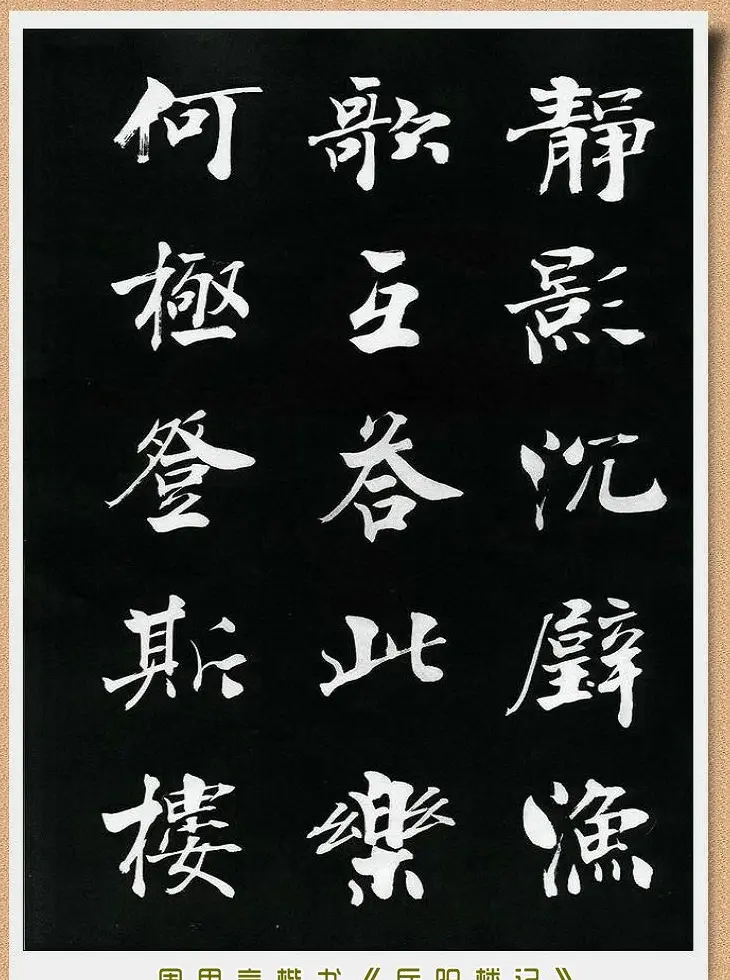 靜影沉璧漁
歌互答此樂
何極登斯樓
周思言楷书《岳阳楼记》